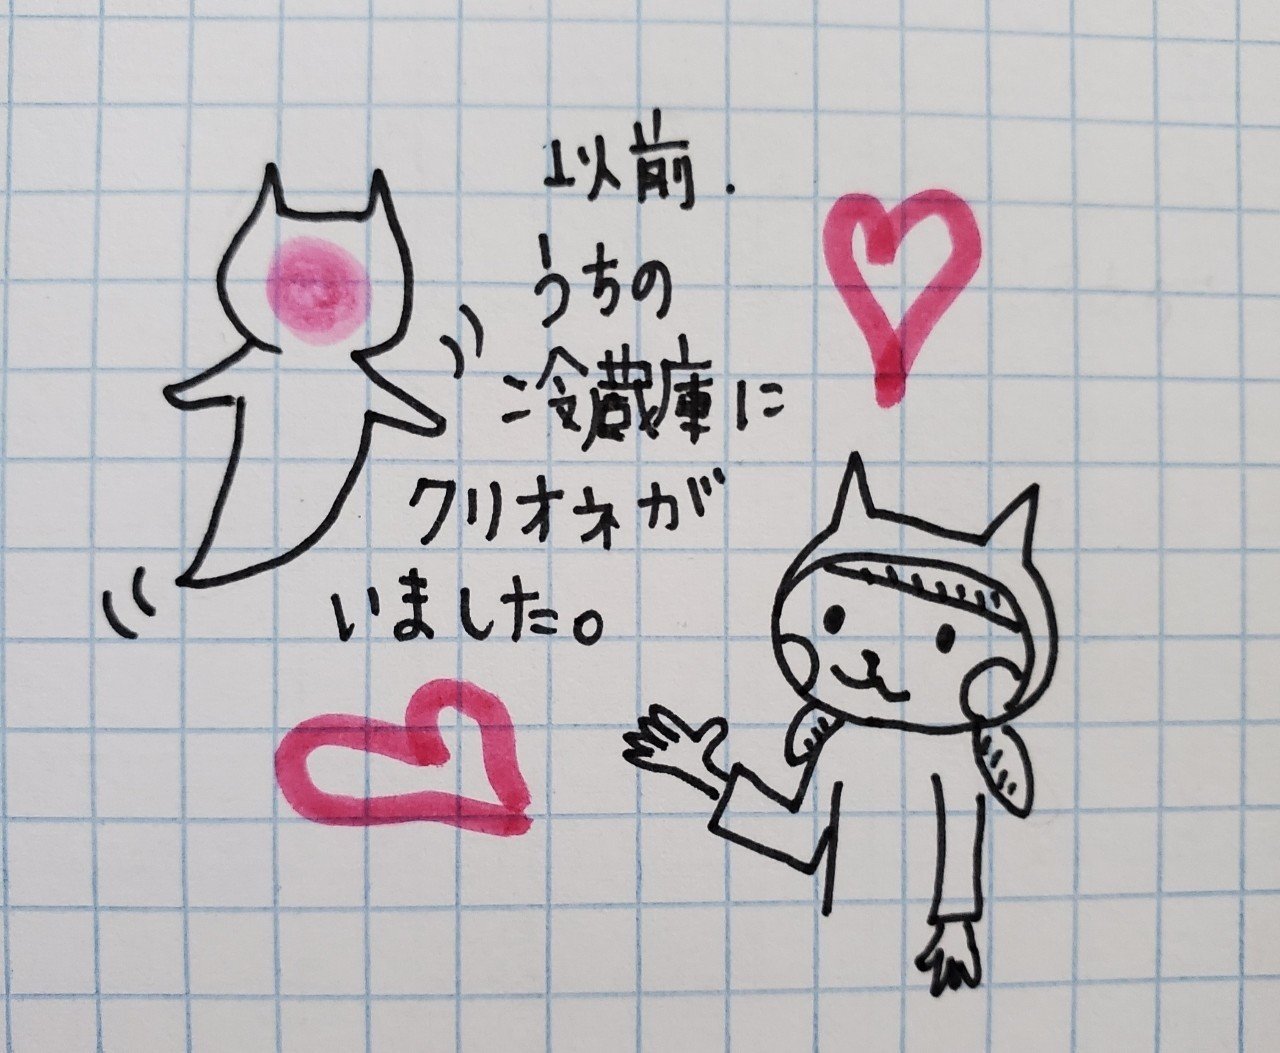 以前.
うちの
冷蔵庫に
クリオネが
いました。